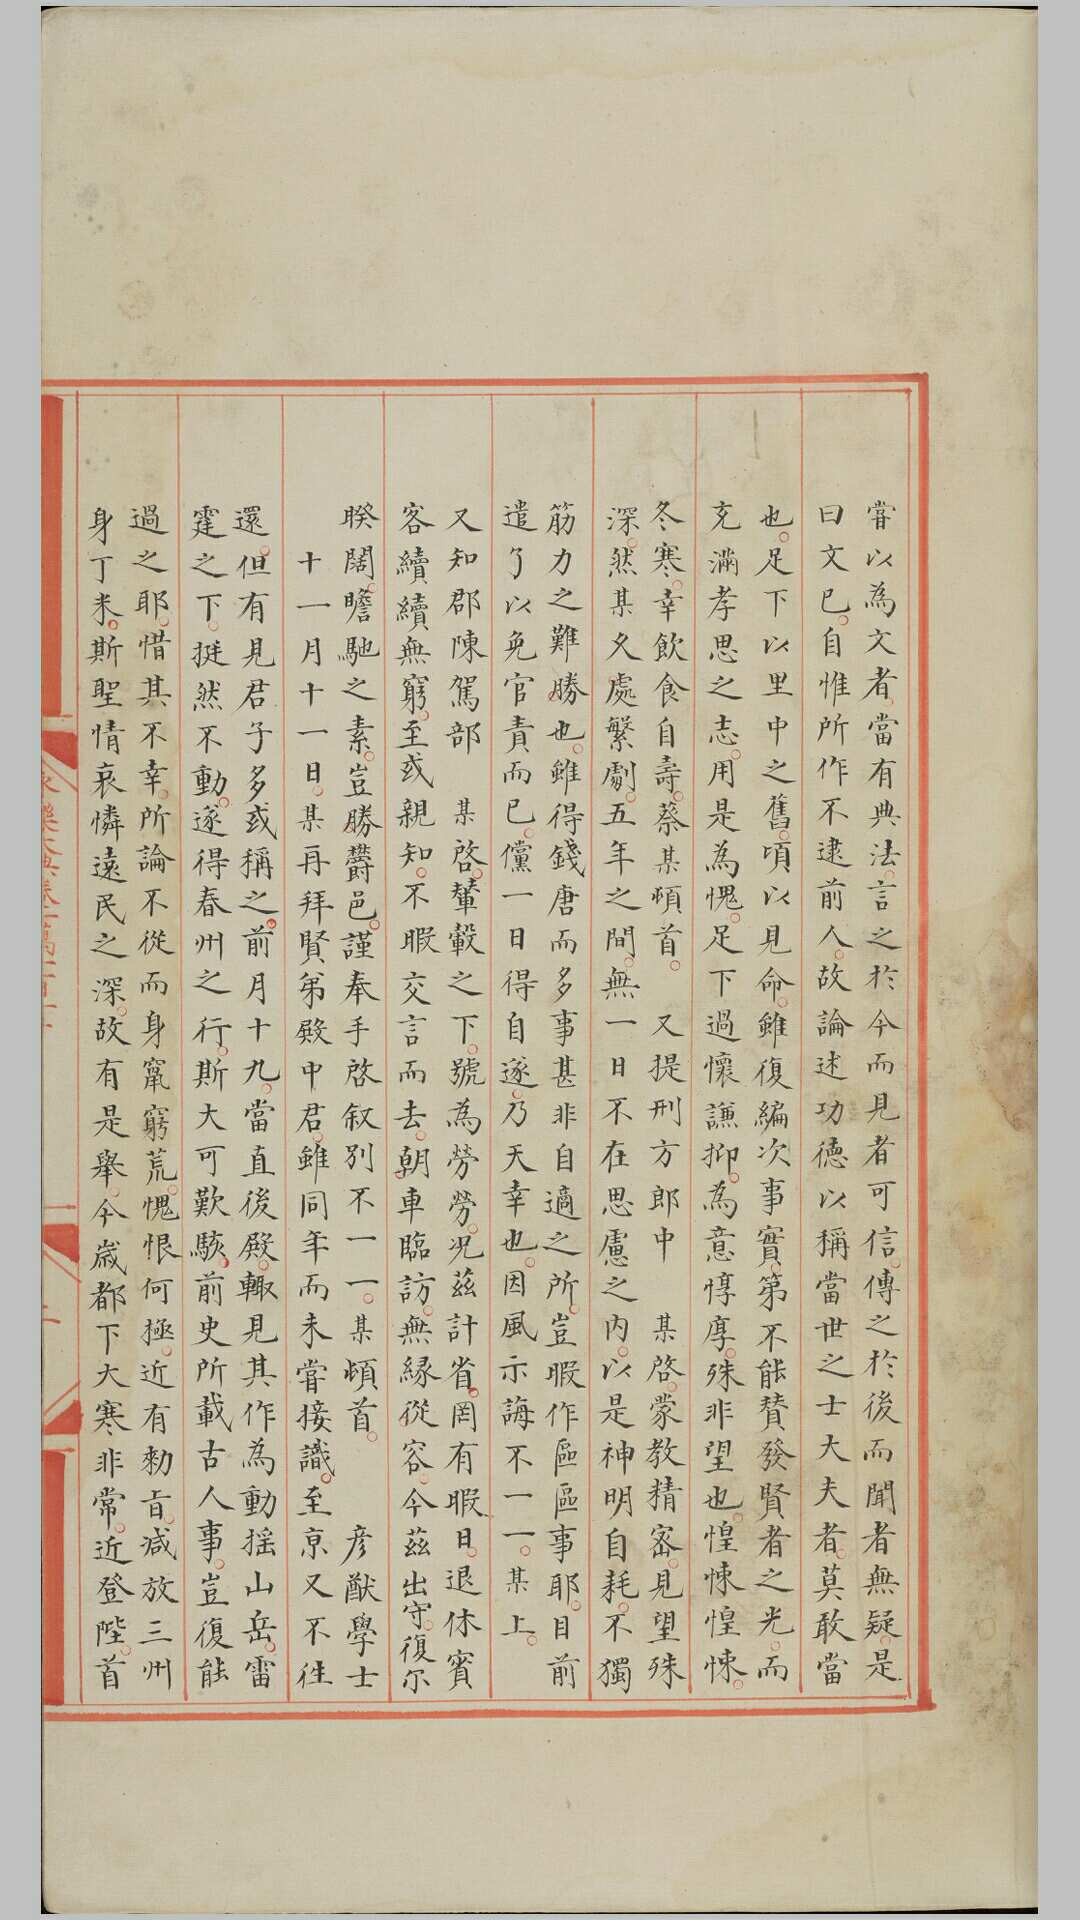 嘗以為文者。當有典法。言之於今而見者可信。傳之於後而聞者無疑。是
曰文已。自惟所作不逮前人。故論述功德以稱當世之士大夫者。莫敢當
也。足下以里中之舊。頃以見命。雖復編次事實。第不能賛發賢者之光。而
充滿孝思之志。用是為愧。足下過懷謙抑。為意惇厚。殊非望也。惶悚惶悚。
冬寒。幸飲食自壽。蔡某頓首。　又提刑方郎中　某啓。蒙教精宻。見望殊
深。然某久處繁劇。五年之間。無一日不在思慮之內。以是神明自耗。不獨
筋力之難勝也。雖得錢唐而多事甚非自適之所。豈暇作區區事耶。目前
遣了以免官責而已。儻一日得自遂。乃天幸也。因風示誨不一一。某上。
又知郡陳駕部　某啓。輦轂之下。號為勞勞。况茲計省。罔有暇日。退休賓
客續續無窮。至或親知。不暇交言而去。朝車臨訪。無緣從容。今茲出守。復尔
睽闊。瞻馳之素。豈勝欝邑。謹奉手啓叙別不一一。某頓首。　彦猷學士
十一月十一日。某再拜賢弟殿中君。雖同年而未嘗接識。至京又不徃
還。但有見君子多或稱之。前月十九。當直後殿。輙見其作為動摇山岳。雷
霆之下。挺然不動。遂得春州之行。斯大可歎駭。前史所載古人事。豈復能
過之耶。惜其不幸。所論不從而身竄窮荒。愧恨何極。近有勑旨。减放三州
身丁米。斯聖情哀憐遠民之深。故有是舉。今歳都下大寒非常。近登陛。首